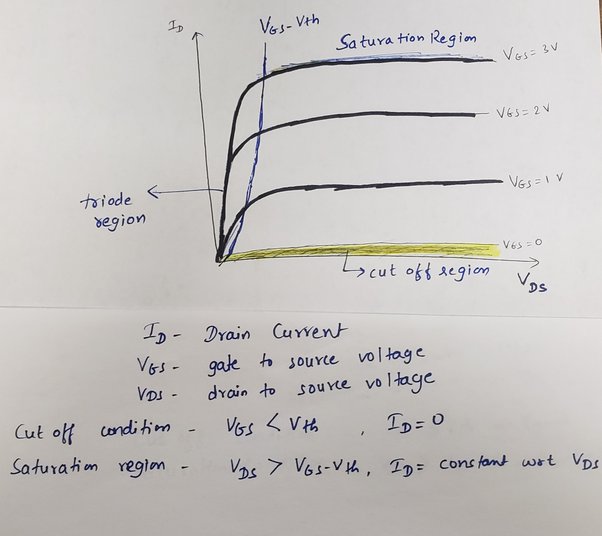 I_D
V_GS-Vth
Saturation Region
V_GS = 3V
V_GS = 2V
V_GS = 1V
triode
region
V_GS = 0
cut off region
V_DS
I_D - Drain Current
V_GS - gate to source voltage
V_DS - drain to source voltage
Cut off condition - V_GS < V_th , I_D = 0
Saturation region - V_DS > V_GS-V_th, I_D = constant wrt V_DS